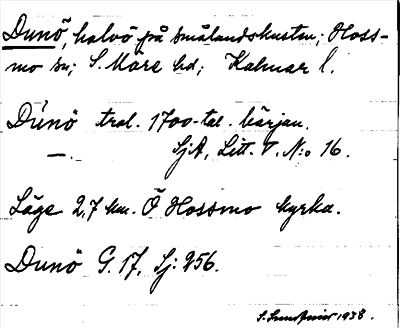 Dunö, halvö på Smålandskusten; Hoss-
mo sn; S. Möre hd; Kalmar l.
Dunö trol. 1700-tal. början.
—. SjA, Litt. V. N:o 16.
Läge 2,7 km. Ö Hossmo kyrka.
Dunö G. 17, Sj: 256.
S. 1938.